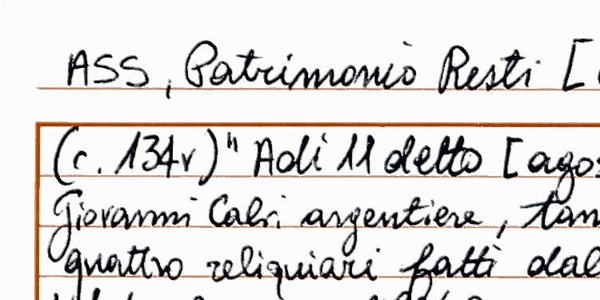 ASS, Patrimonio Resti [
(c. 134v) " Adì 11 detto [agos
Giovanni Calvi argentiere, tan
quattro reliquiari fatti dal